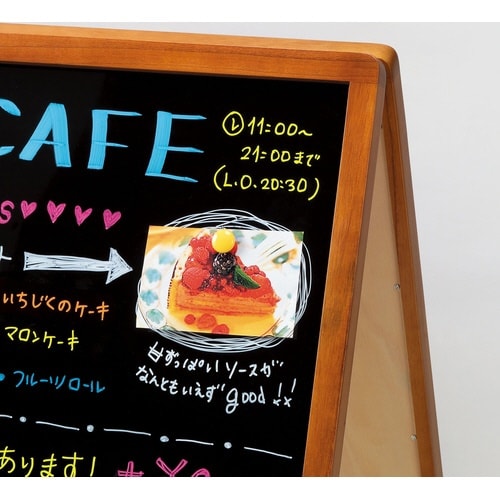 CAFE
11:00〜
21:00まで
(L.O. 20:30)
S♥♥♥♥
いちじくのケーキ
マロンケーキ
• フルーツロール
甘ずっぱいソースが
なんともいえず good!!
あります!